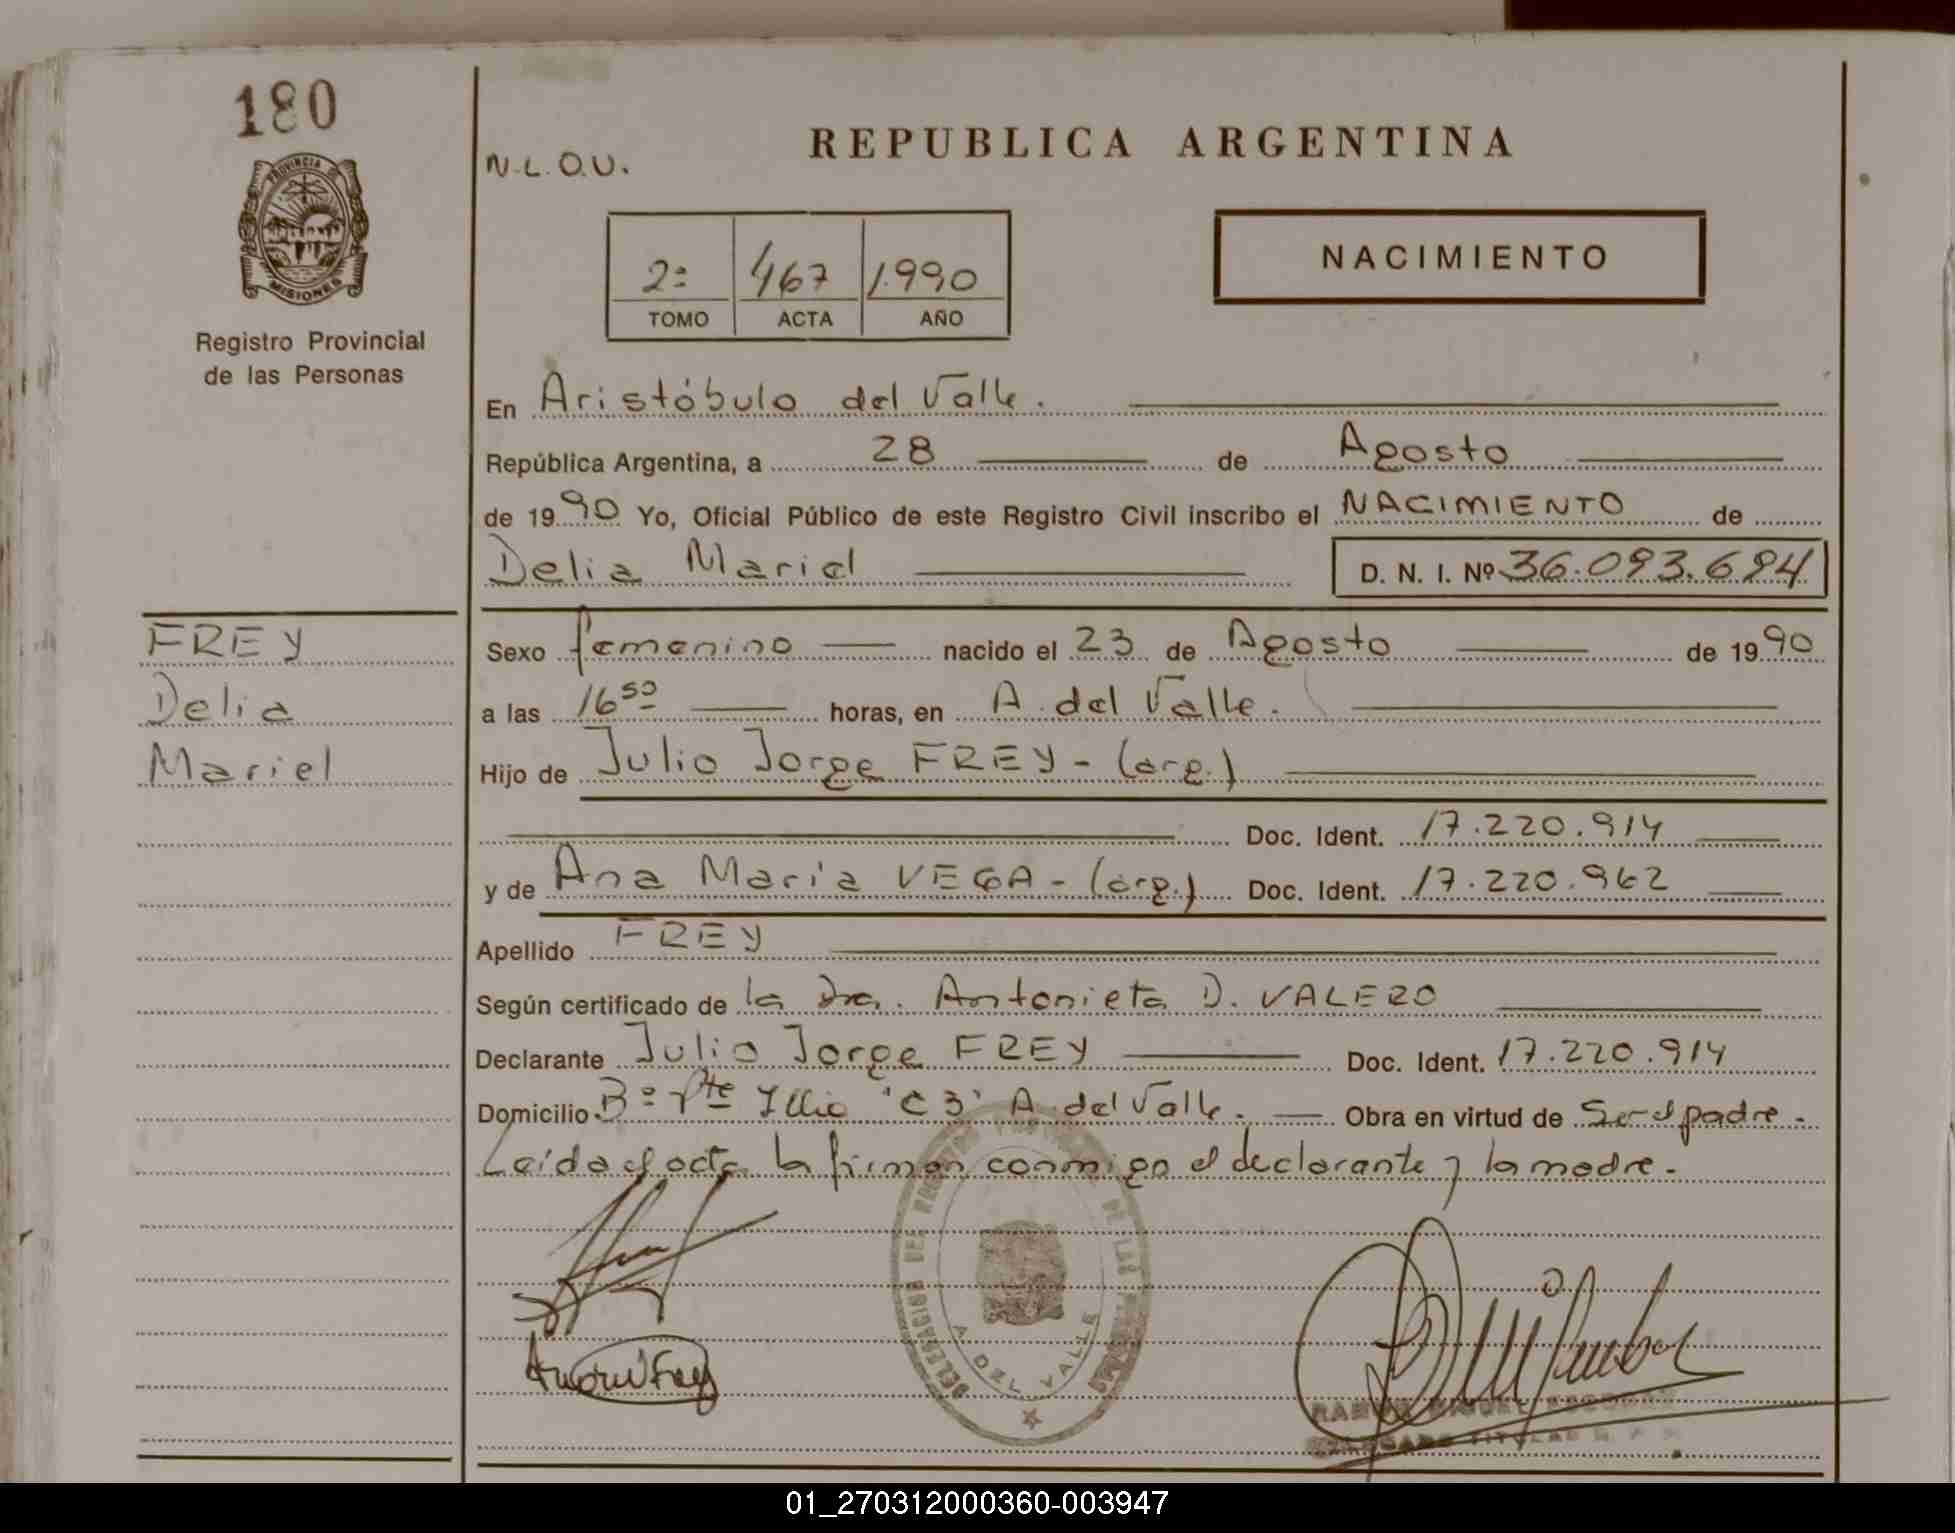 180
PROVINCIA DE
MISIONES
Registro Provincial
de las Personas
N.L.O.U.
REPUBLICA ARGENTINA
2º 467 1.990
TOMO ACTA AÑO
NACIMIENTO
En Aristóbulo del Valle.
República Argentina, a 28 de Agosto
de 1990 Yo, Oficial Público de este Registro Civil inscribo el NACIMIENTO de
Delia Mariel D. N. I. Nº 36.093.694
FREY
Delia
Mariel
Sexo femenino nacido el 23 de Agosto de 1990
a las 16 50 horas, en A. del Valle.
Hijo de Julio Jorge FREY - (arg.)
Doc. Ident. 17.220.914
y de Ana María VEGA - (arg.) Doc. Ident. 17.220.962
Apellido FREY
Según certificado de la Dra. Antonieta D. VALERO
Declarante Julio Jorge FREY Doc. Ident. 17.220.914
Domicilio Bº Pte Illia "C 3" A. del Valle. Obra en virtud de Ser el padre.
Leída el acta la firman conmigo el declarante y la madre.
DELEGACION DEL REGISTRO DE LAS
A. DEL VALLE
RAMON MIGUEL ESCOBAR
DELEGADO TITULAR
01_270312000360-003947